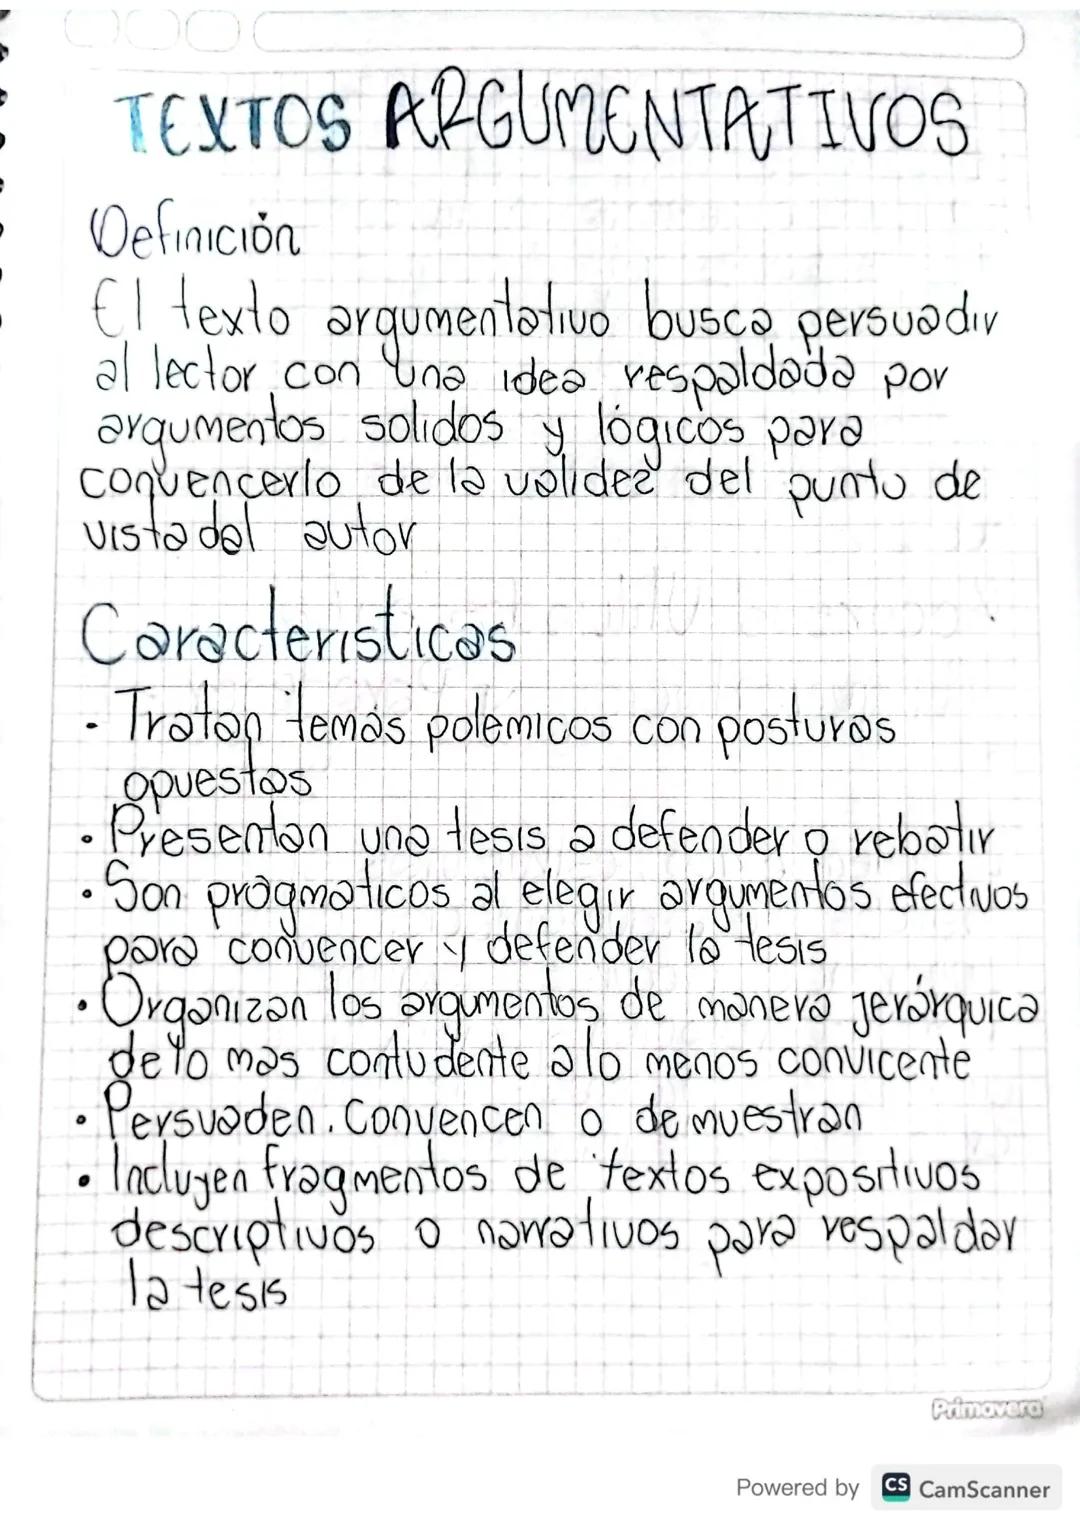 TEXTOS ARGUMENTATIVOS
Definición
El texto argumentativo busca persuadir
al lector con una idea respaldada por
argumentos solidos y lógicos para
convencerlo de la validez del punto de
vista del autor
Caracteristicas
• Tratan temas polemicos con posturas
opuestas
• Presentan una tesis a defender o rebatir
• Son pragmaticos al elegir argumentos efectivos
para convencer y defender la tesis
• Organizan los argumentos de manera jerárquica
de lo mas contudente a lo menos convicente
• Persuaden. Convencen o demuestran
• Incluyen fragmentos de textos expositivos
descriptivos o narrativos para respaldar
la tesis
Primavera
Powered by CS CamScanner